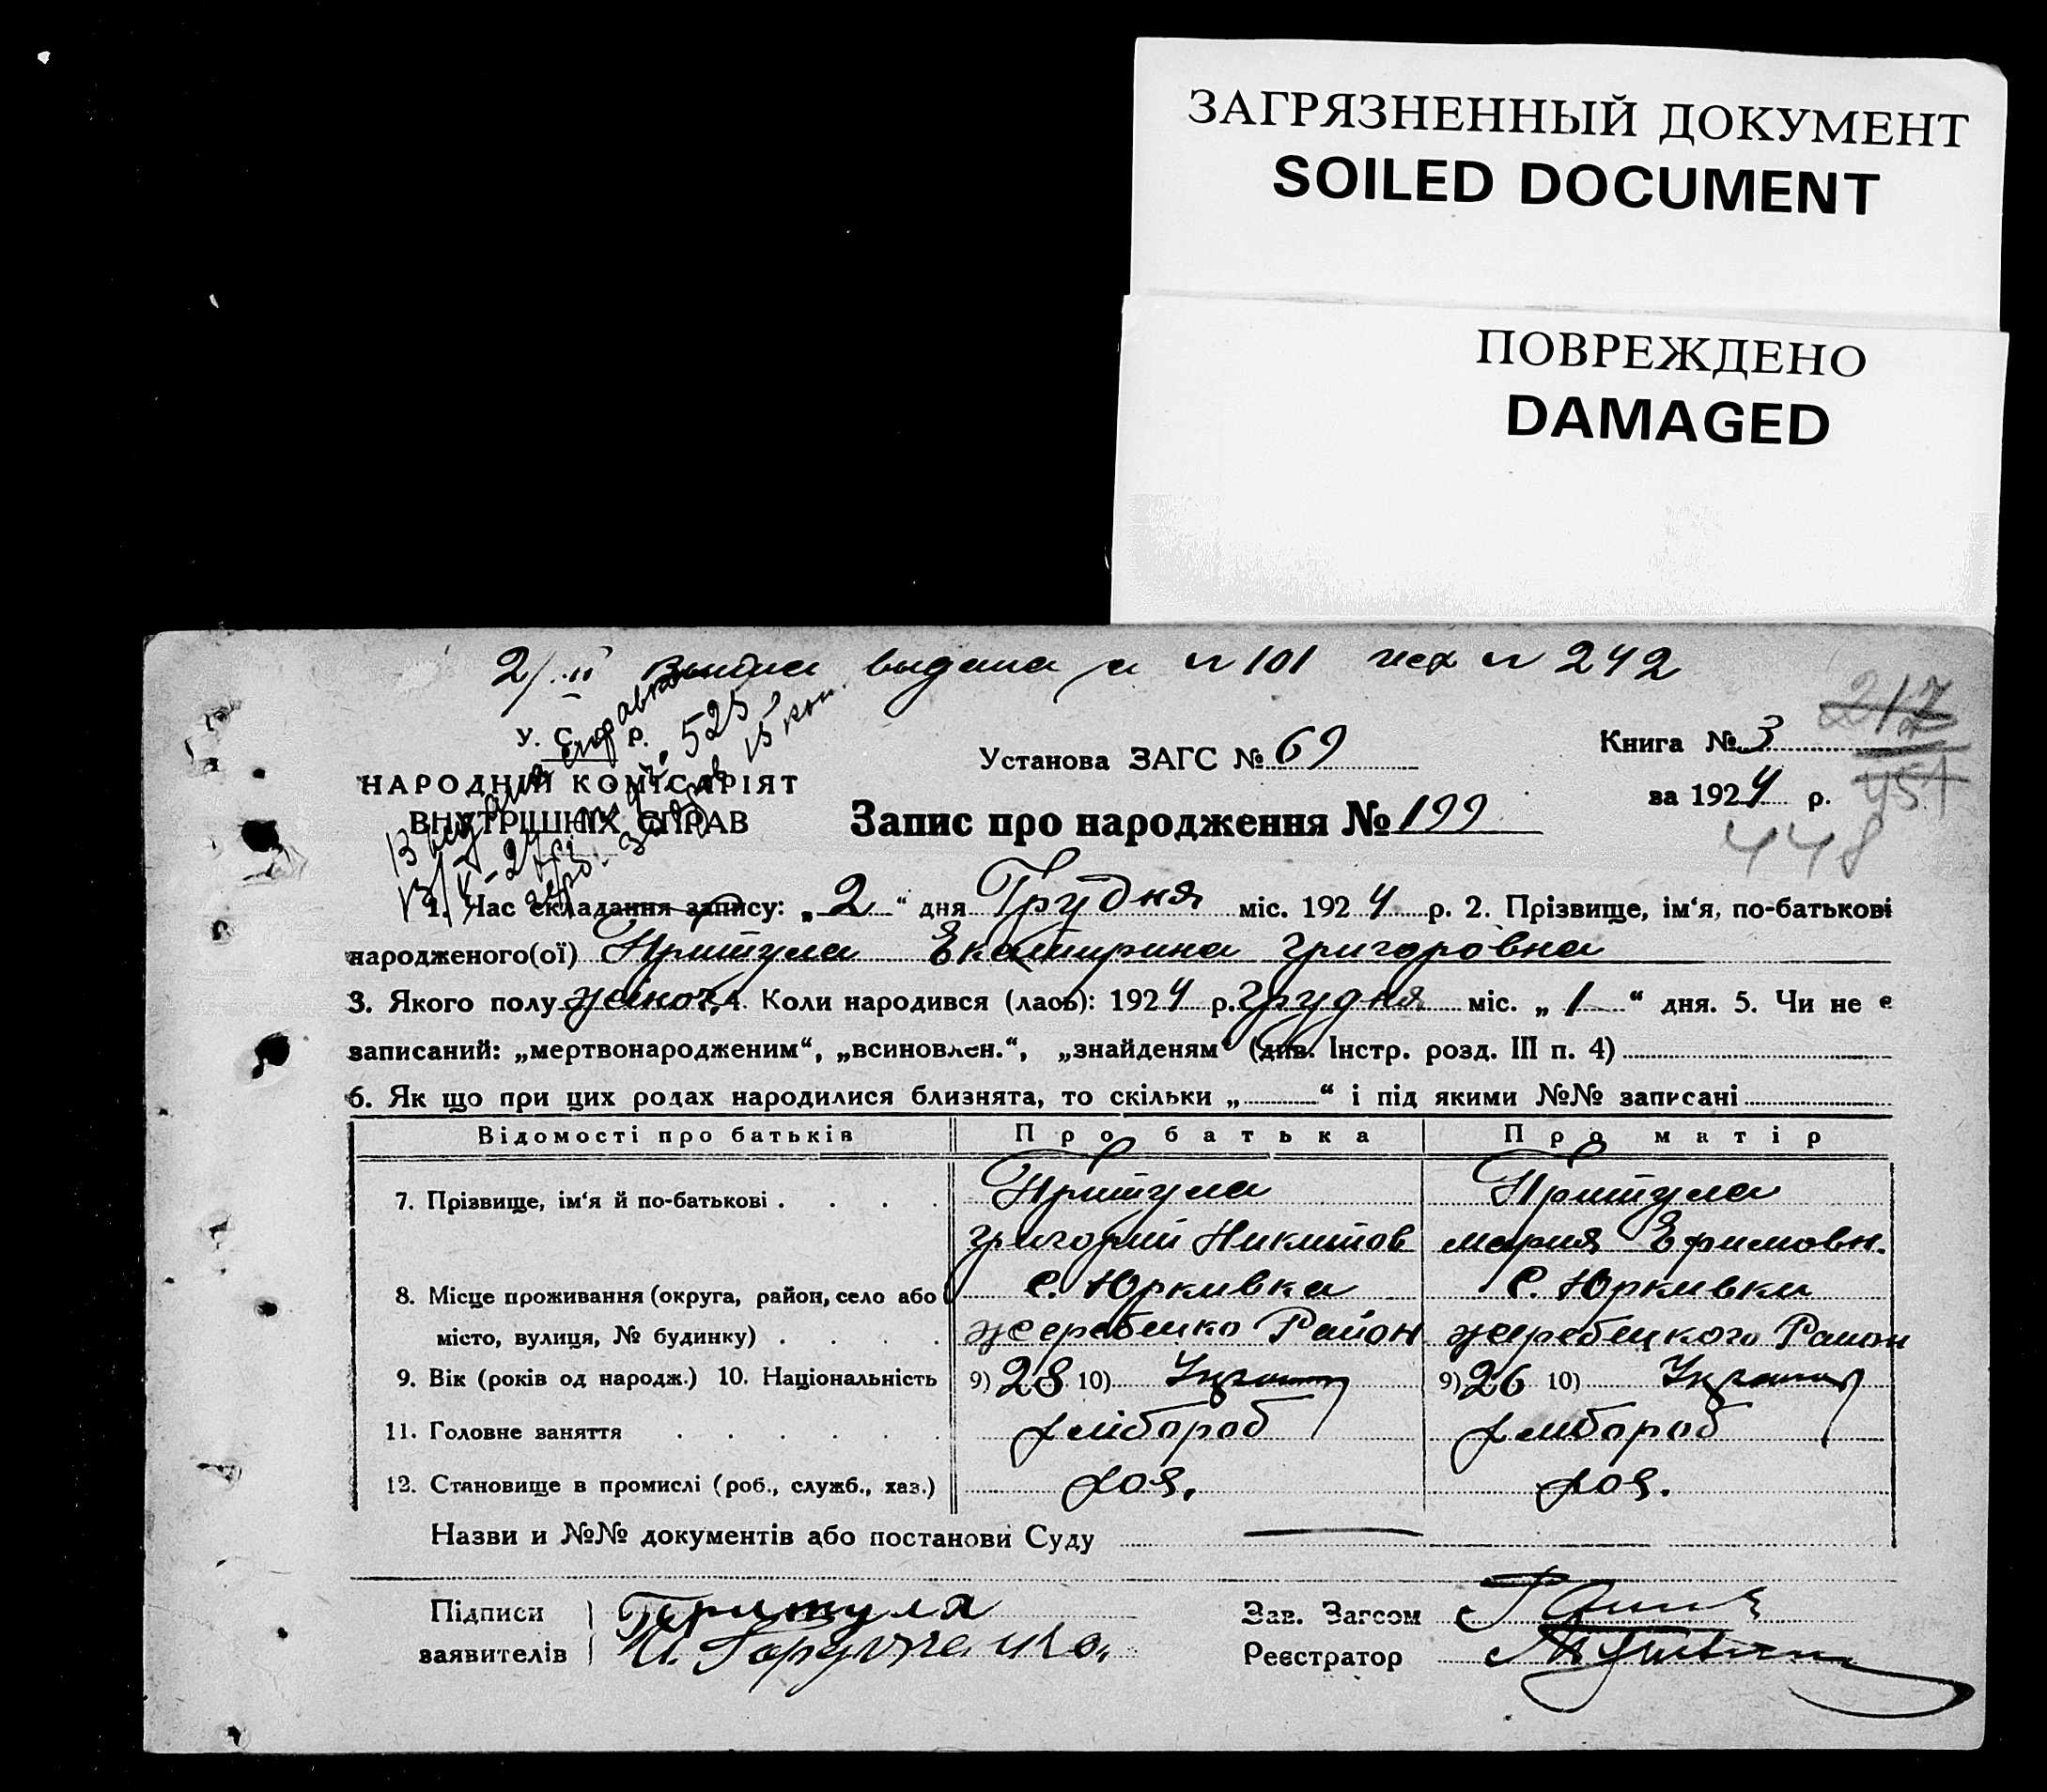 ЗАГРЯЗНЕННЫЙ ДОКУМЕНТ
SOILED DOCUMENT
ПОВРЕЖДЕНО
DAMAGED
2/II выдана № 101 № 242
217
У. С. Р. Р.
Установа ЗАГС № 69
Книга № 3
НАРОДНІЙ КОМІСАРІЯТ
за 1924 р.
451
ВНУТРІШНІХ СПРАВ
справка 525 15 коп.
Запис про народження № 199
448
1. Час складання запису: „2“ дня Грудня міс. 1924 р. 2. Прізвище, ім'я, по-батькові
народженого(ої) Притула Екатирина Григоровна
3. Якого полу жіноч. 4. Коли народився (лась): 1924 р. Грудня міс. „1“ дня. 5. Чи не є
записаний: „мертвонародженим“, „всиновлен.“, „знайденям“ (див. Інстр. розд. III п. 4)
6. Як що при цих родах народилися близнята, то скільки „ “ і під якими №№ записані
Відомості про батьків Про батька Про матір
7. Прізвище, ім'я й по-батькові Притула Притула
Григорий Никитов Мария Ефимовн.
8. Місце проживання (округа, район, село або С. Юркивка С. Юркивки
місто, вулиця, № будинку) Жеребецко Район Жеребецкого Район
9. Вік (років од народж.) 10. Національність 9) 28 10) 9) 26 10)
11. Головне заняття хлібороб хлібороб
12. Становище в промислі (роб., служб., хаз.) хоз. хоз.
Назви и №№ документів або постанови Суду
Підписи Притула Зав. Загсом
заявителів Реєстратор